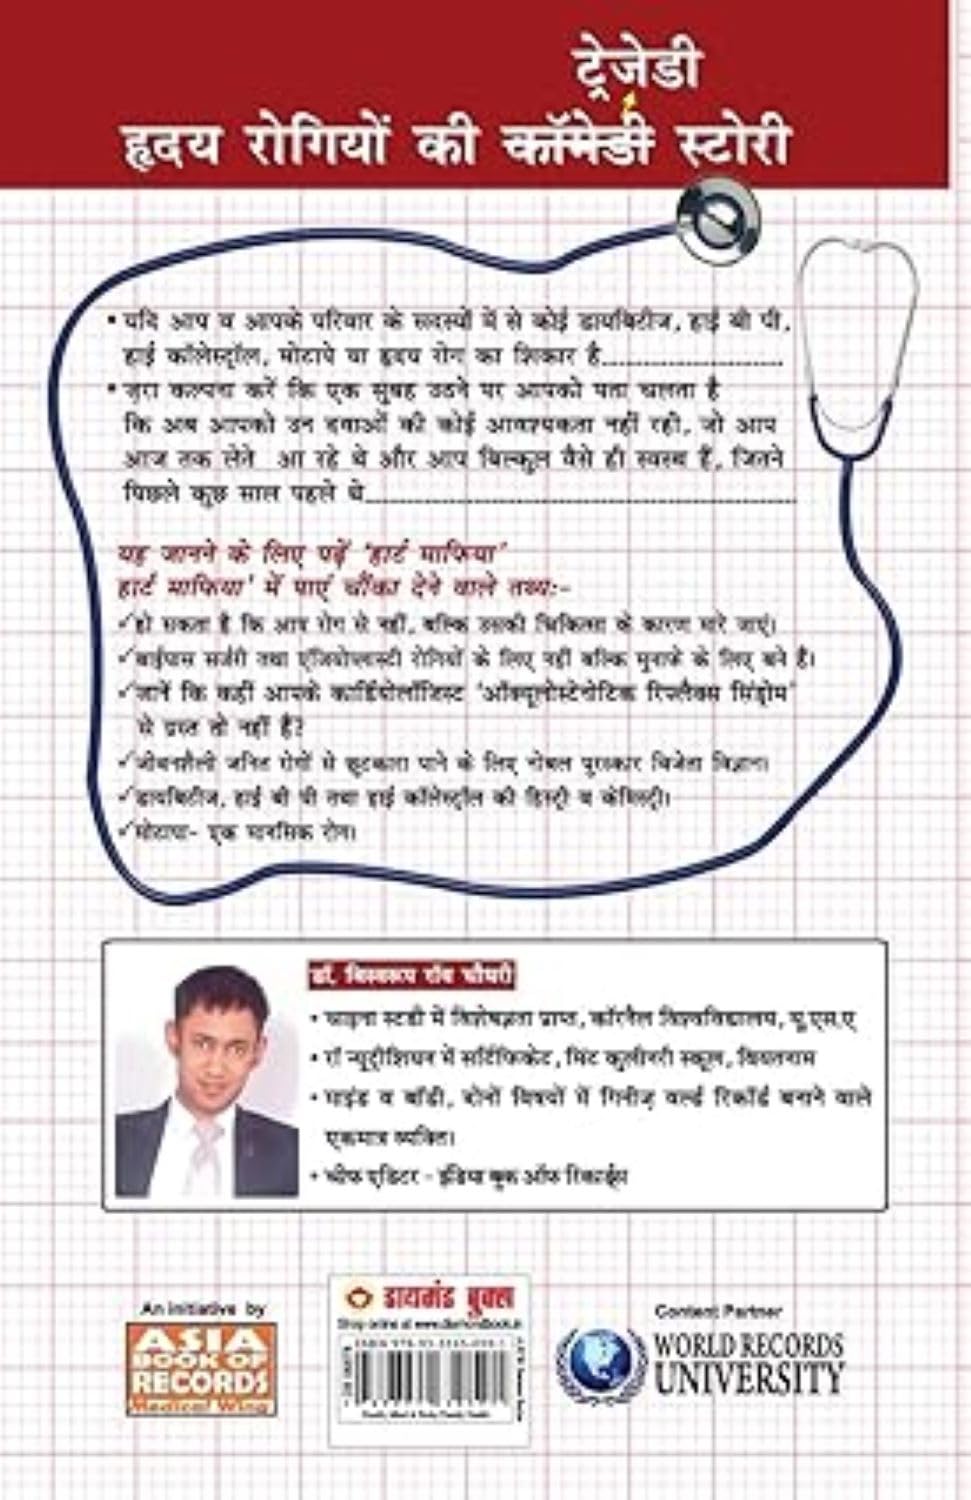 ट्रेजेडी
हृदय रोगियों की कॉमेडी स्टोरी
• यदि आप व आपके परिवार के सदस्यों में से कोई डायबिटीज, हाई बी पी,
हाई कॉलेस्ट्रॉल, मोटापे या हृदय रोग का शिकार है
• ज़रा कल्पना करें कि एक सुबह उठने पर आपको पता चलता है
कि अब आपको उन दवाओं की कोई आवश्यकता नहीं रही, जो आप
आज तक लेते आ रहे थे और आप बिल्कुल वैसे ही स्वस्थ हैं, जितने
पिछले कुछ साल पहले थे
यह जानने के लिए पढ़ें 'हार्ट माफिया'
हार्ट माफिया' में पाएं चौंका देने वाले तथ्य:-
✓हो सकता है कि आप रोग से नहीं, बल्कि उसकी चिकित्सा के कारण मारे जाएं।
✓बाईपास सर्जरी तथा एंजियोप्लास्टी रोगियों के लिए नहीं बल्कि मुनाफे के लिए बने हैं।
✓जानें कि कहीं आपके कार्डियोलॉजिस्ट 'ऑक्यूलोस्टेनोटिक रिफ्लैक्स सिंड्रोम'
से ग्रस्त तो नहीं हैं?
✓जीवनशैली जनित रोगों से छुटकारा पाने के लिए नोबल पुरस्कार विजेता विज्ञान।
✓डायबिटीज, हाई बी पी तथा हाई कॉलेस्ट्रॉल की हिस्ट्री व केमिस्ट्री।
✓मोटापा- एक मानसिक रोग।
डॉ. बिस्वरूप रॉय चौधरी
• चाइना स्टडी में विशेषज्ञता प्राप्त, कॉरनैल विश्वविद्यालय, यू.एस.ए
• रॉ न्यूट्रीशियन में सर्टिफिकेट, मिंट कुलीनरी स्कूल, वियतनाम
• माइंड व बॉडी, दोनों विषयों में गिनीज़ वर्ल्ड रिकॉर्ड बनाने वाले
एकमात्र व्यक्ति।
• चीफ एडिटर - इंडिया बुक ऑफ रिकार्ड्स
An initiative by
ASIA
BOOK OF
RECORDS
Medical Wing
डायमंड बुक्स
Shop online at www.diamondbook.in
Content Partner
WORLD RECORDS
UNIVERSITY